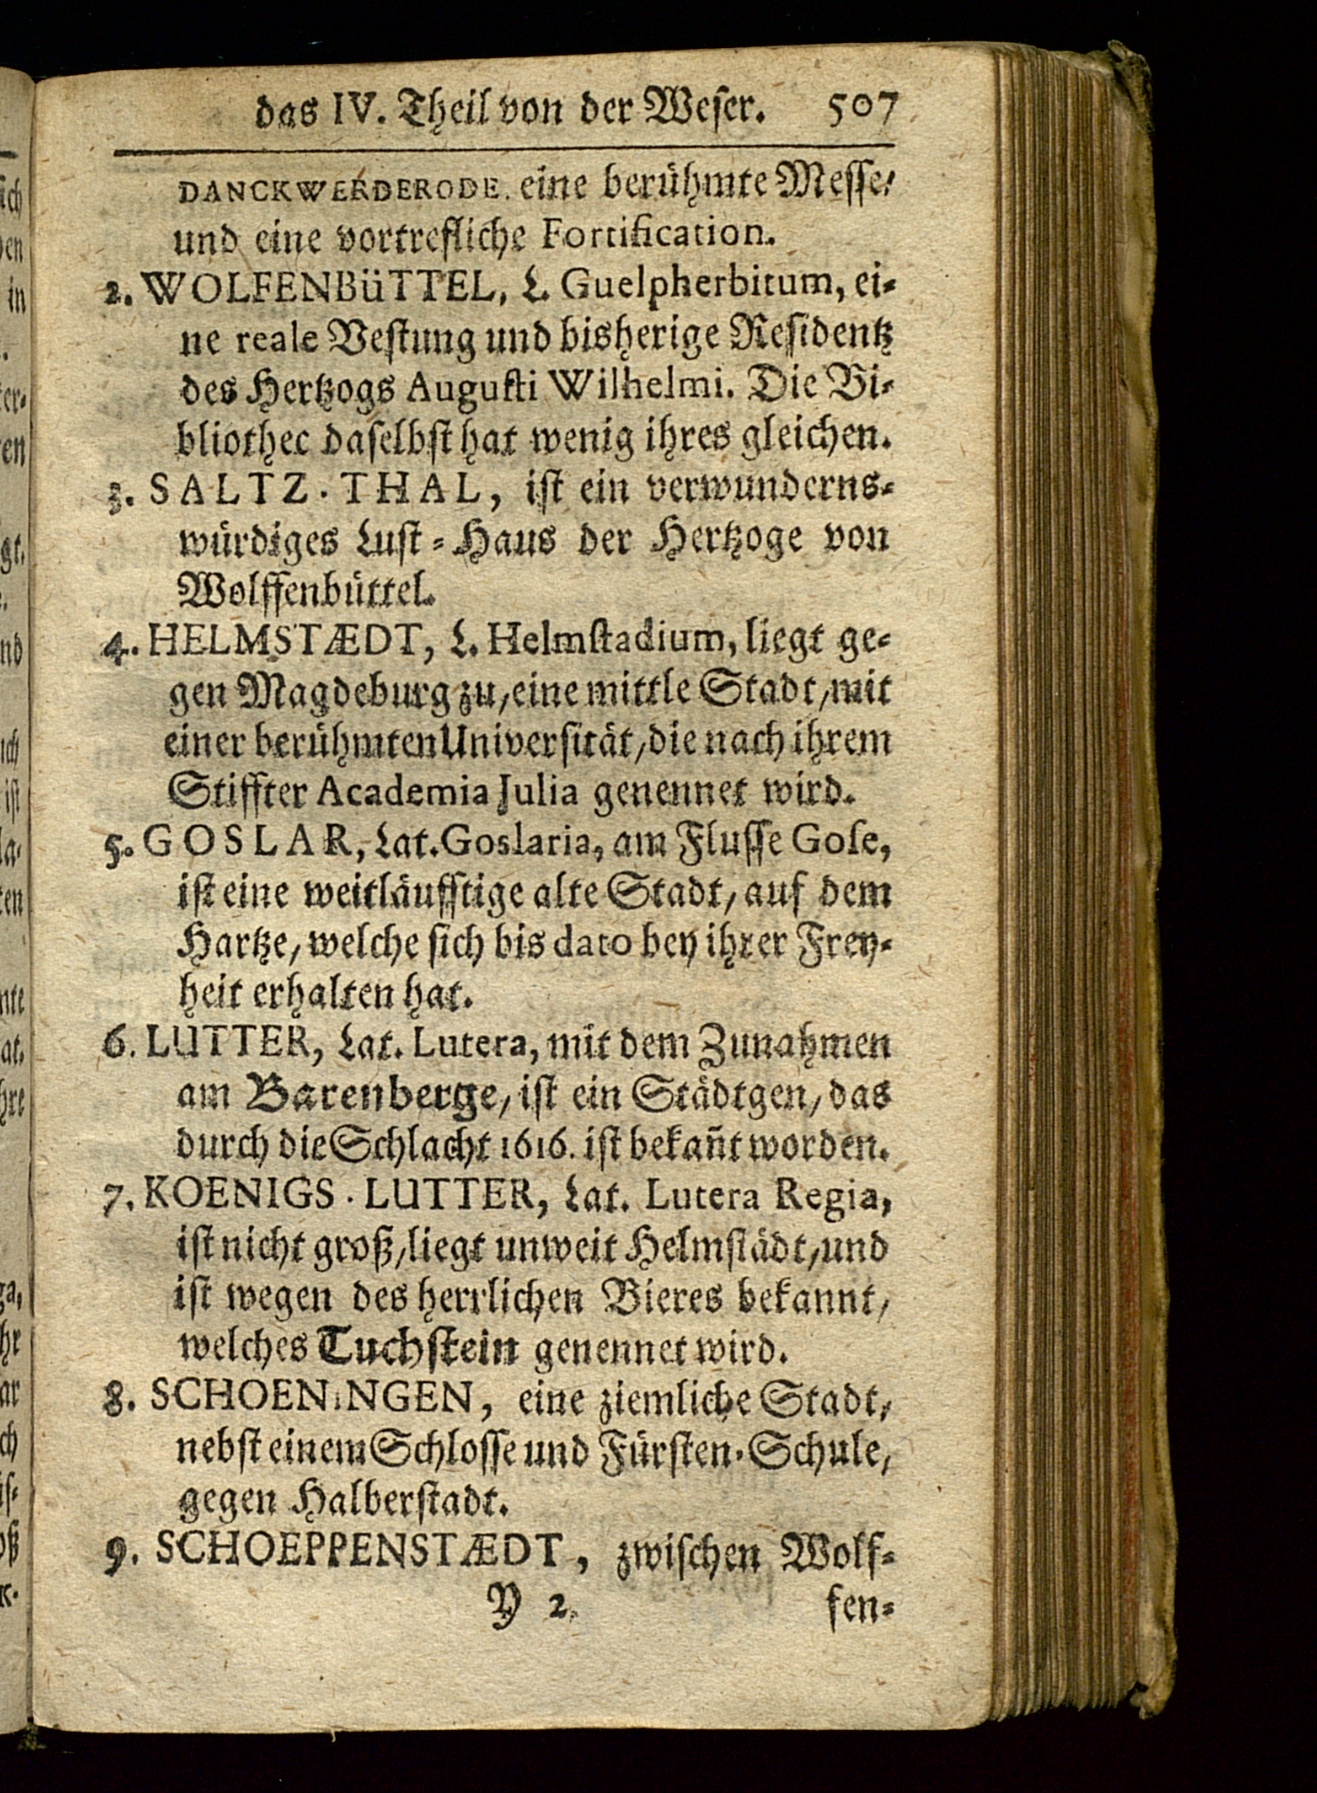 das IV. Theil von der Weser. 507
DANCKWERDERODE. eine berühmte Messe/
und eine vortrefliche Fortification.
2. WOLFENBüTTEL, L. Guelpherbitum, ei-
ne reale Vestung und bisherige Residentz
des Hertzogs Augusti Wilhelmi. Die Bi-
bliothec daselbst hat wenig ihres gleichen.
3. SALTZ-THAL, ist ein verwunderns-
würdiges Lust-Haus der Hertzoge von
Wolffenbüttel.
4. HELMSTÆDT, L. Helmstadium, liegt ge-
gen Magdeburg zu/eine mittle Stadt/mit
einer berühmten Universität/die nach ihrem
Stiffter Academia Julia genennet wird.
5. GOSLAR, Lat. Goslaria, am Flusse Gose,
ist eine weitläufftige alte Stadt/auf dem
Hartze/welche sich bis dato bey ihrer Frey-
heit erhalten hat.
6. LUTTER, Lat. Lutera, mit dem Zunahmen
am Barenberge/ist ein Städtgen/das
durch die Schlacht 1616. ist bekañt worden.
7. KOENIGS-LUTTER, Lat. Lutera Regia,
ist nicht groß/liegt unweit Helmstädt/und
ist wegen des herrlichen Bieres bekannt/
welches Tuchstein genennet wird.
8. SCHOENINGEN, eine ziemliche Stadt/
nebst einem Schlosse und Fürsten-Schule/
gegen Halberstadt.
9. SCHOEPPENSTÆDT, zwischen Wolf-
Y 2 fen-